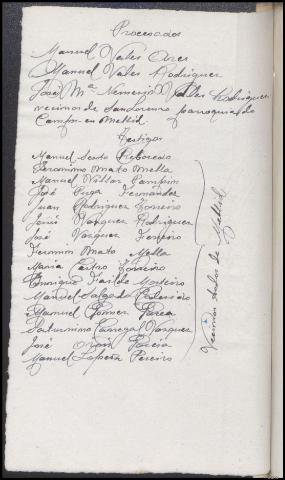 Procesados
Manuel Vales Ares
Manuel Vales Rodriguez
José Mª Nemesio Valles Rodriguez
vecinos de San Lorenzo parroquia de
Campos en Mellid
Testigos
Manuel Seoto Reboredo
Jeronimo Mato Mella
Manuel Villar Pampin
José Puga Fernández
Juan Rodriguez Torreiro
Jesús Vazquez Rodriguez
José Vazquez Ferreiro
Fermin Mato Mella
Maria Castro Torreiro
Enrique Failde Mosteiro
Manuel Salgado
Manuel Gomez Garea
Saturnino Carregal Vazquez
José García
Manuel Lopera Pereiro
Vecinos todos de Mellid